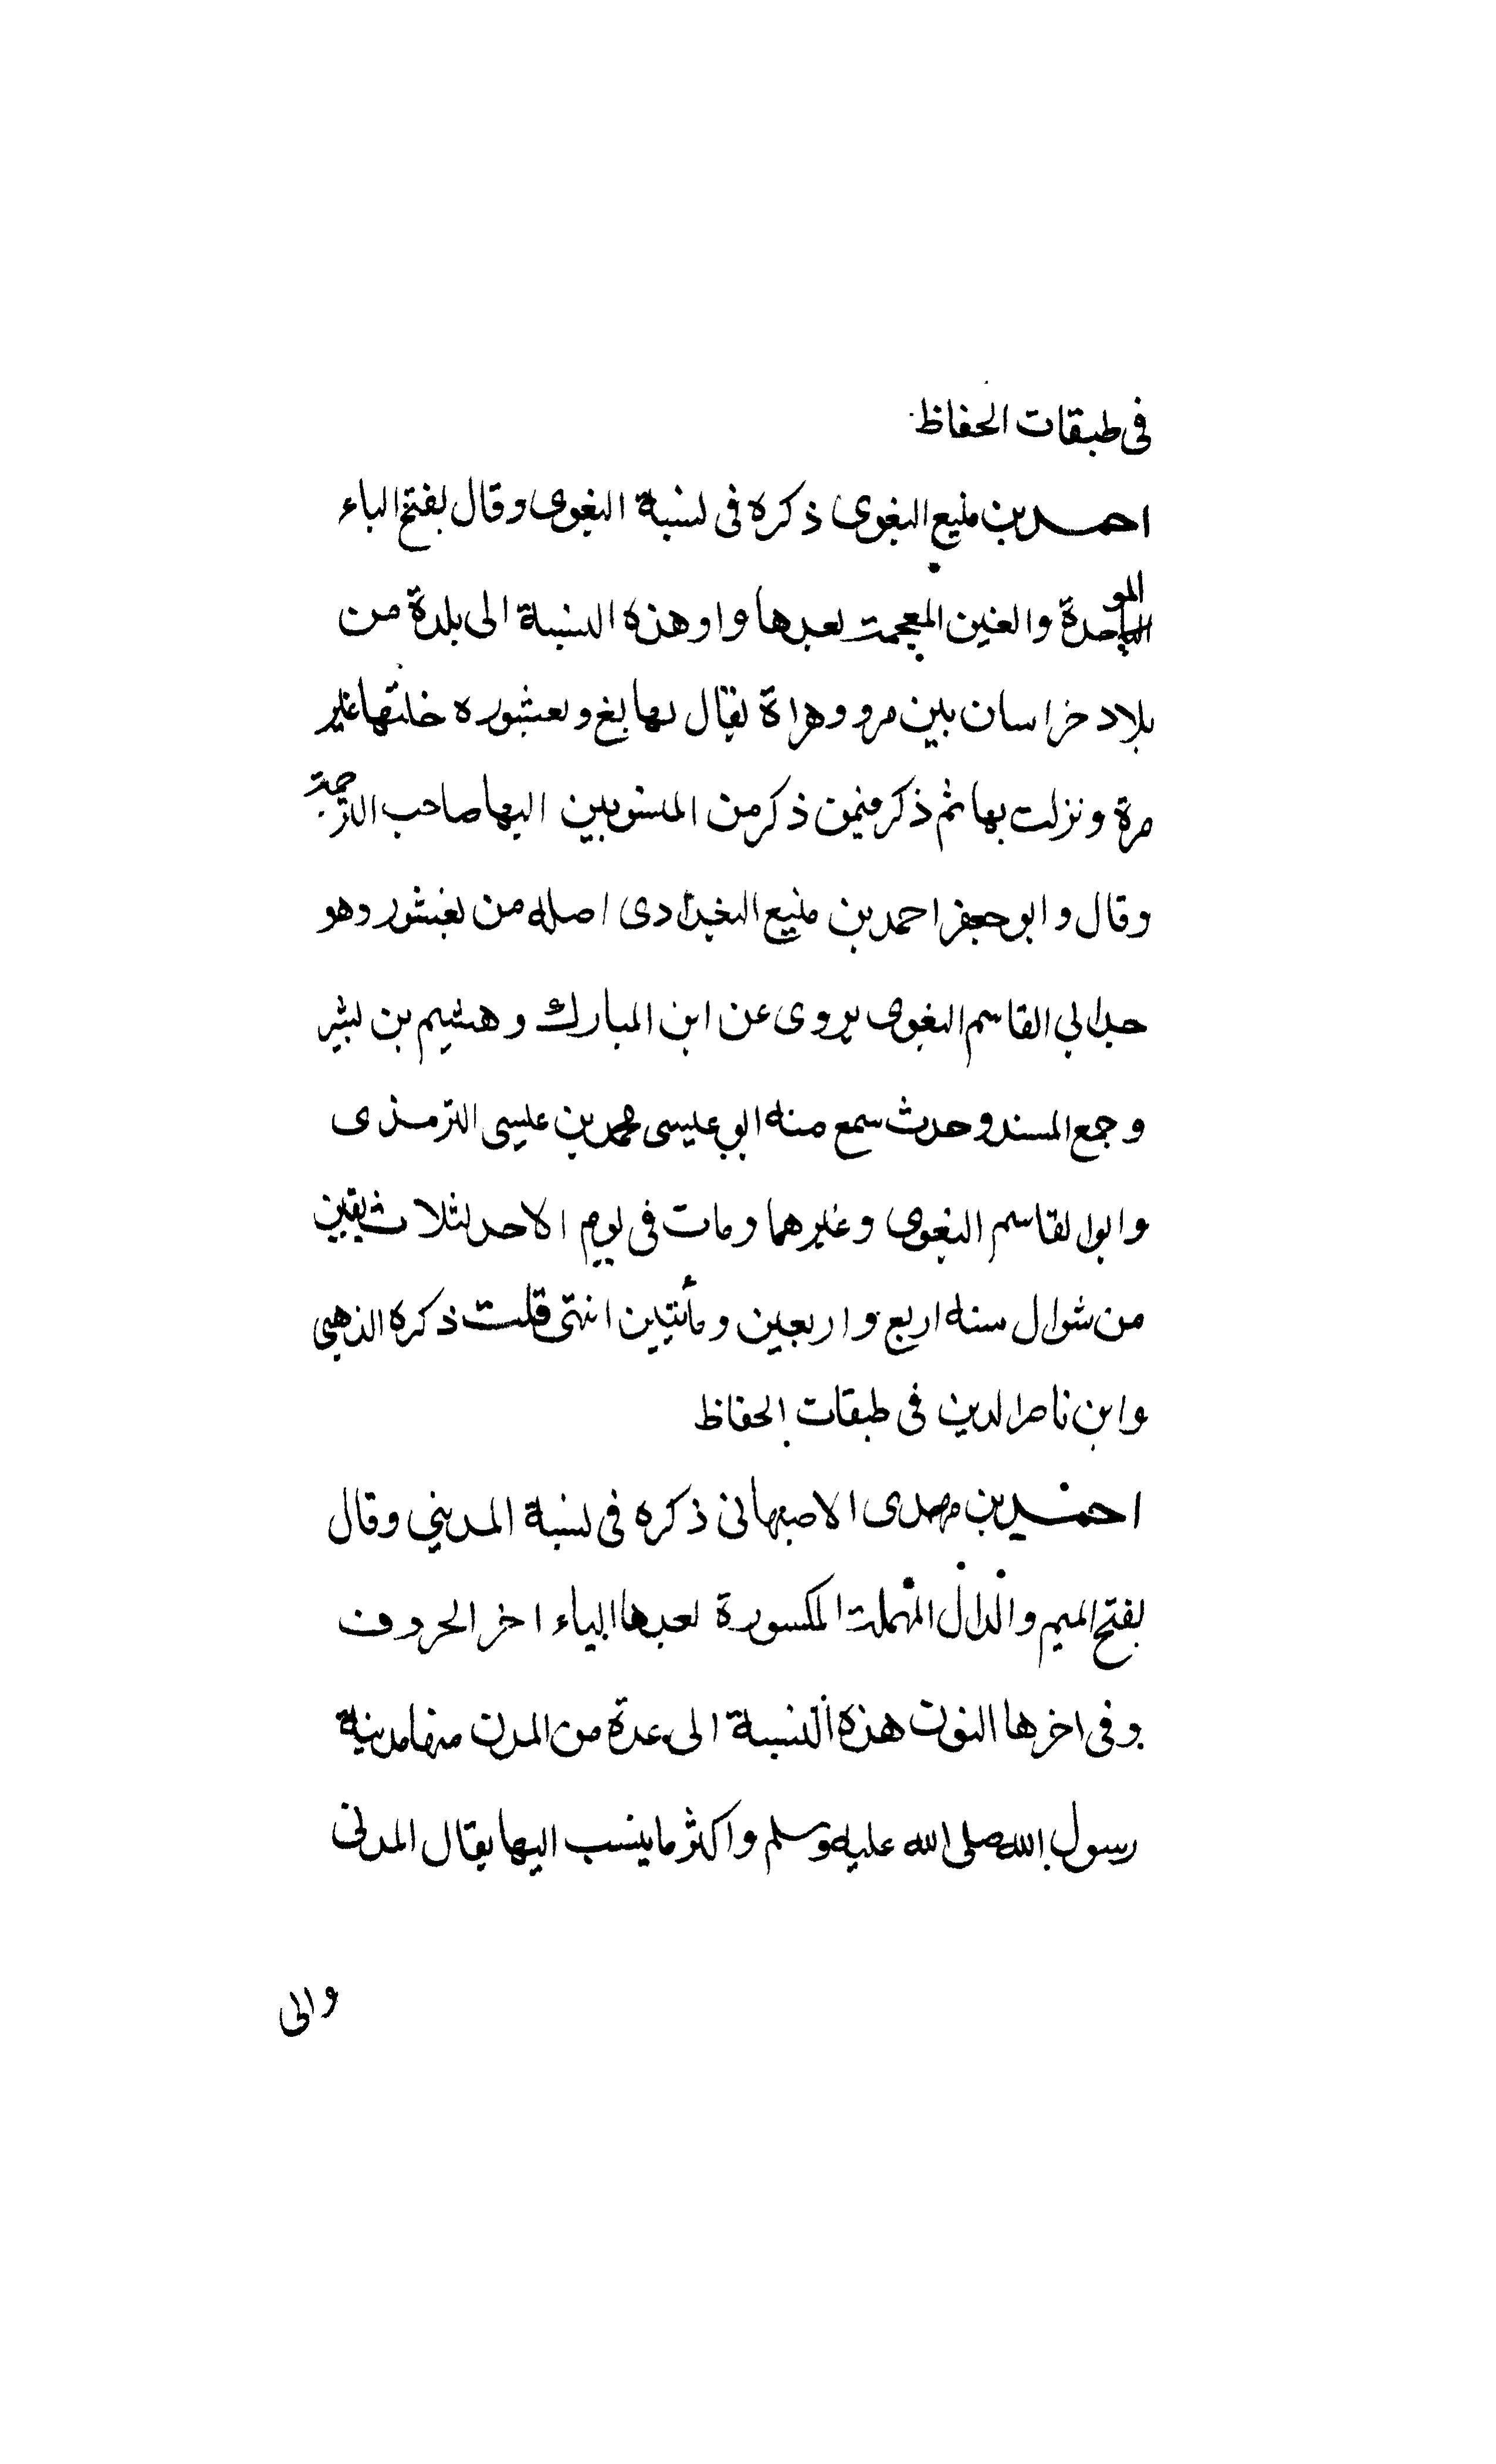 فى طبقات الحفاظ
احمد بن منيع البغوى ذكره فى نسبة البغوى وقال بفتح الباء
الموحدة والغين المعجمة بعدها واو هذه النسبة الى بلدة من
بلاد خراسان بين مرو وهراة يقال لها بغ وبغشور ه خلتها غير
مرة ونزلت بها ثم ذكر فيمن ذكر من المنسوبين اليها صاحب الترجمة
وقال وابو جعفر احمد بن منيع البغدادى اصله من بغشور وهو
جد ابي القاسم البغوى يروى عن ابن المبارك وهشيم بن بشير
وجمع المسند وحدث سمع منه ابو عيسى محمد بن عيسى الترمذى
وابو القاسم البغوى وغيرهما ومات فى يوم الاحد لثلاث بقين
من شوال سنه اربع واربعين ومأتين انتهى قلت ذكره الذهبي
وابن ناصر الدين فى طبقات الحفاظ
احمد بن مهدى الاصبهانى ذكره فى نسبة المديني وقال
بفتح الميم والدال المهملة المكسورة بعدها الياء اخر الحروف
وفى اخرها النون هذه النسبة الى عدة من المدن منها مدينة
رسول الله صلى الله عليه وسلم واكثر ما ينسب اليها يقال المدنى
والى